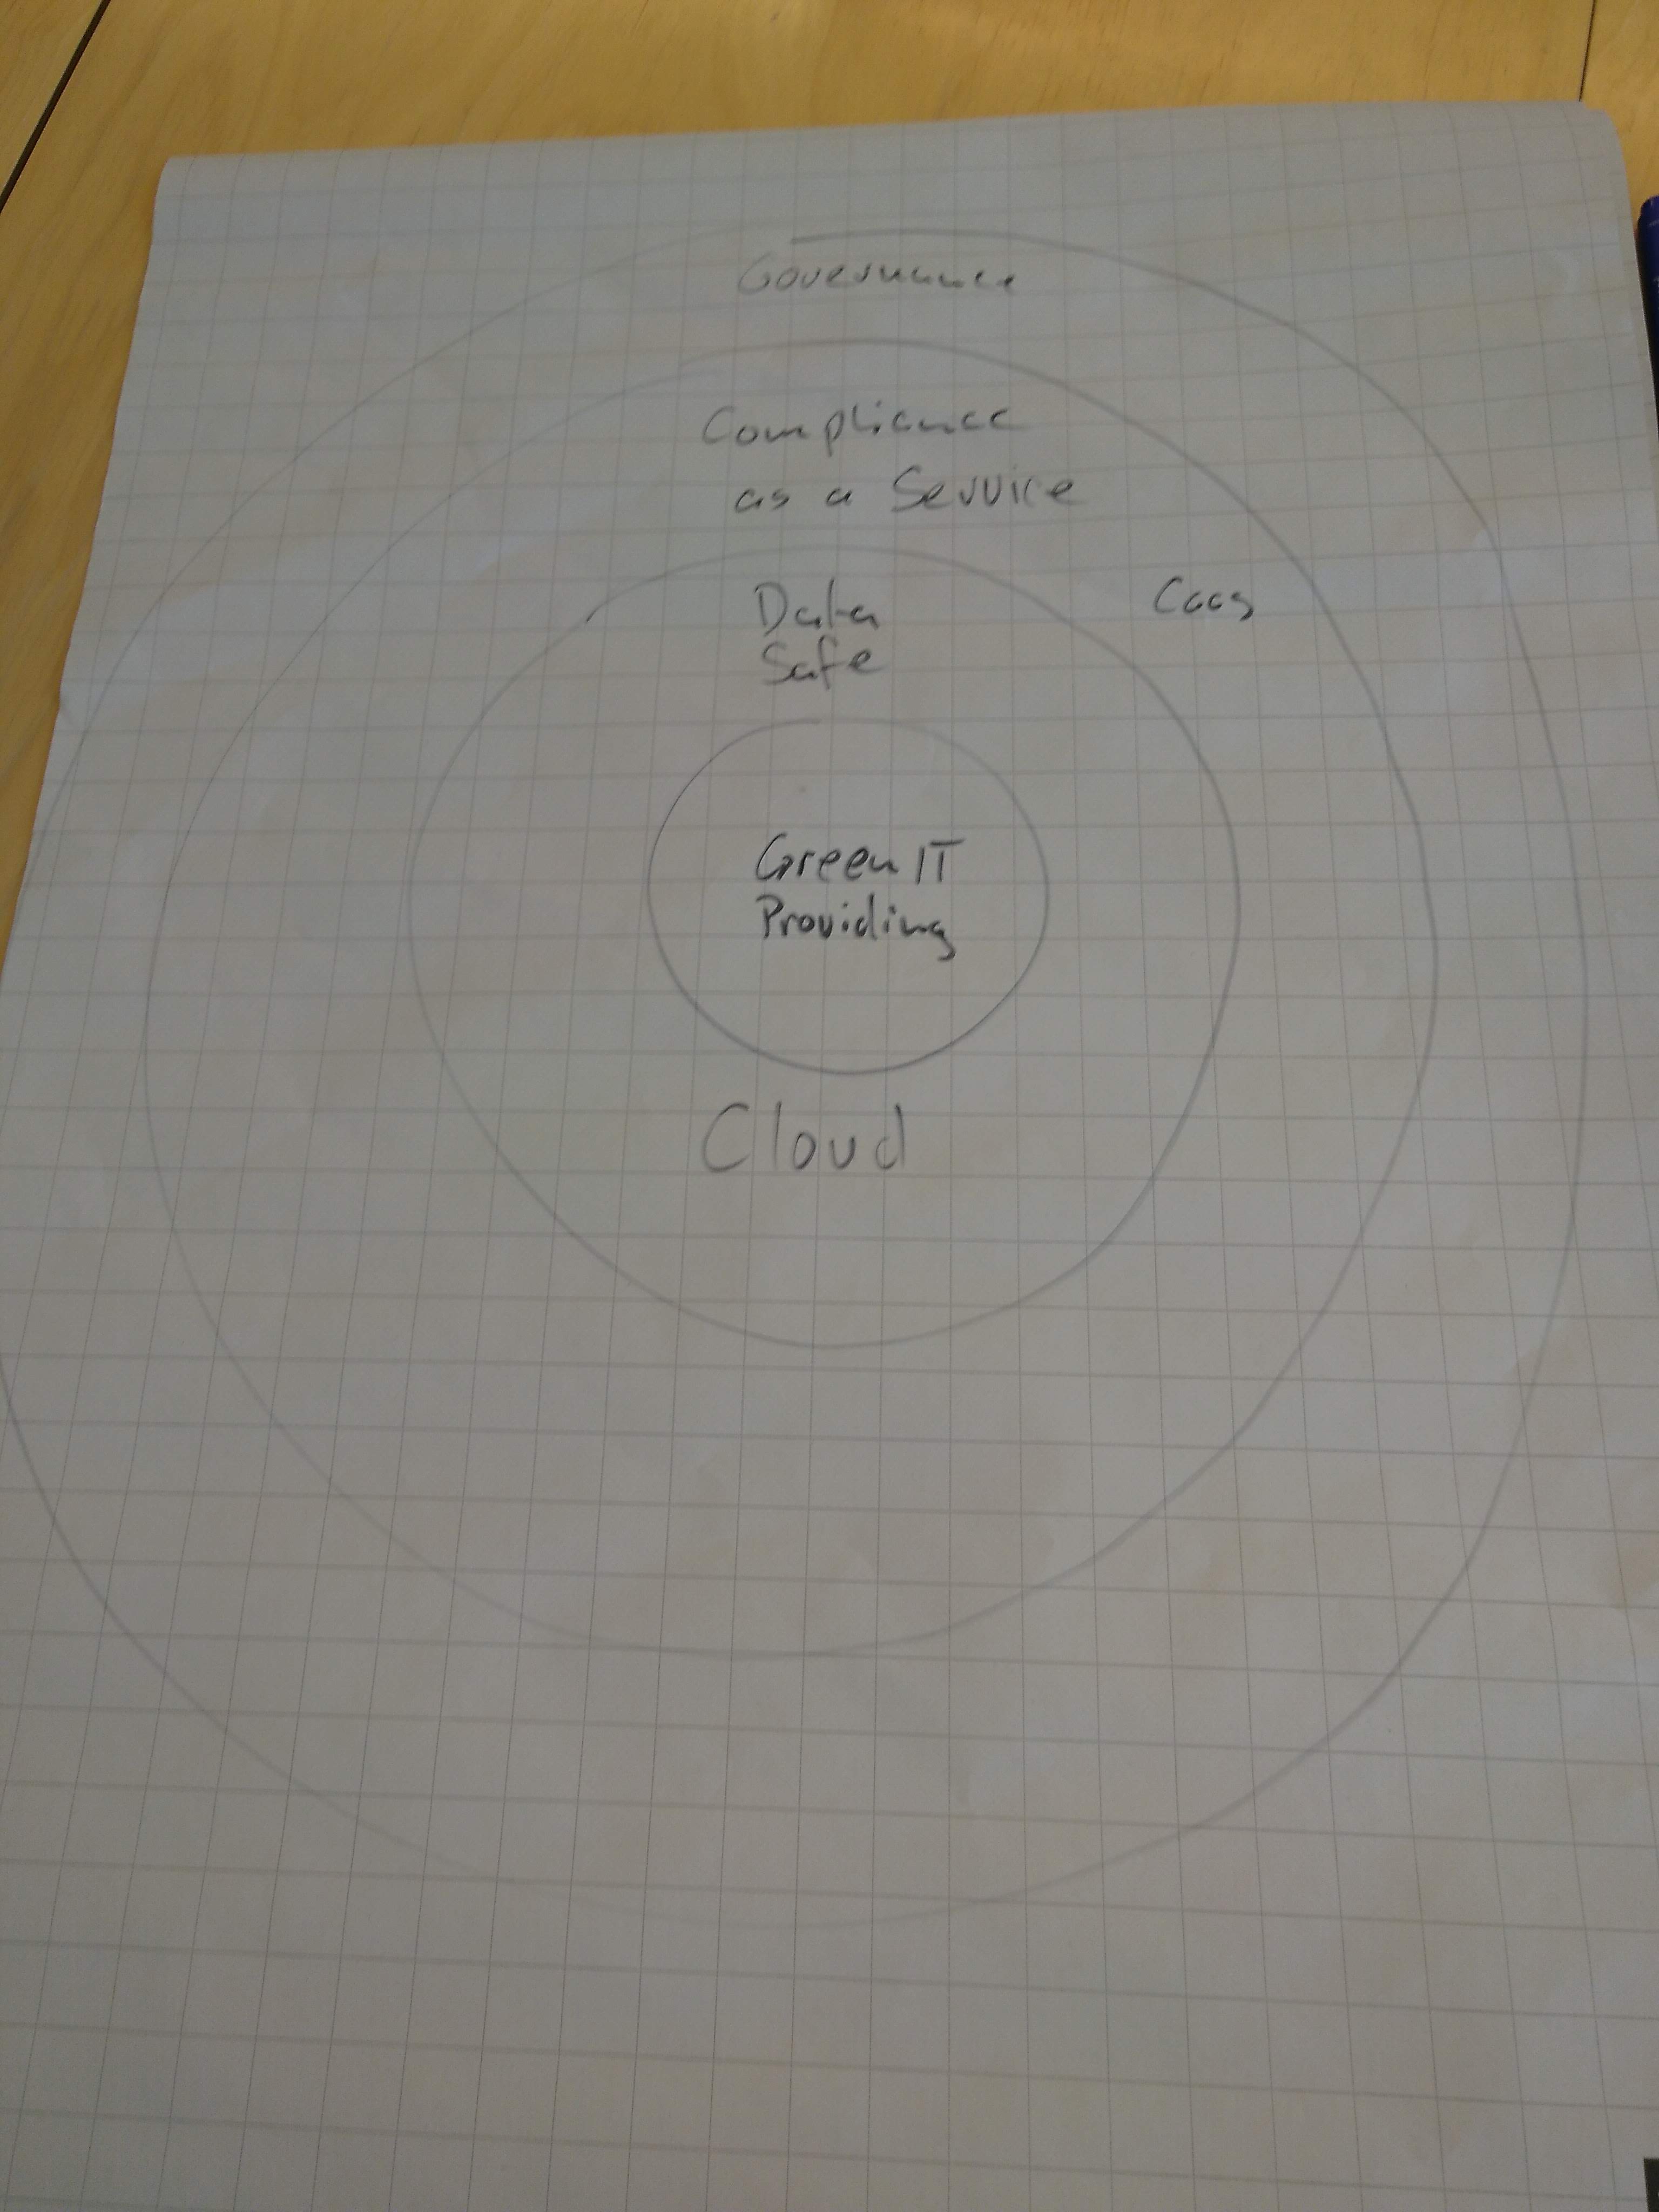 Governance
Compliance
as a Service
Data
Safe
Caas
Green IT
Providing
Cloud